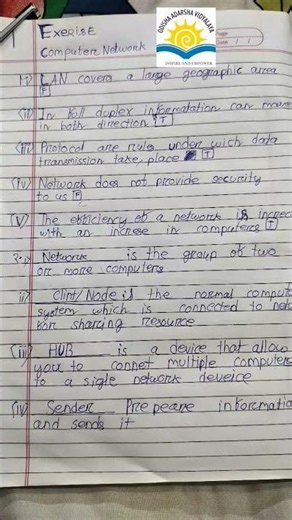 ODISHA ADARSHA VIDYALAYA
INSPIRE AND EMPOWER
1 Exerise
Computer Network
i) LAN covers a large geographic area
F
(ii) In full duplex informatation can move
in both direction T
(iii) Protocol are rules under wich data
transmission take place T
(iv) Network does not provide security
to us F
(v) The efficiency of a network is increc
with an increse in computers T
3.i) Network is the group of two
or more computers
ii) Clint/Node is the normal comput
system which is connected to net
for sharing resource
(iii) HUB is a device that allow
you to connet multiple computer
to a sigle network deveice
(iv) Sender Prepeare informatio
and sends it